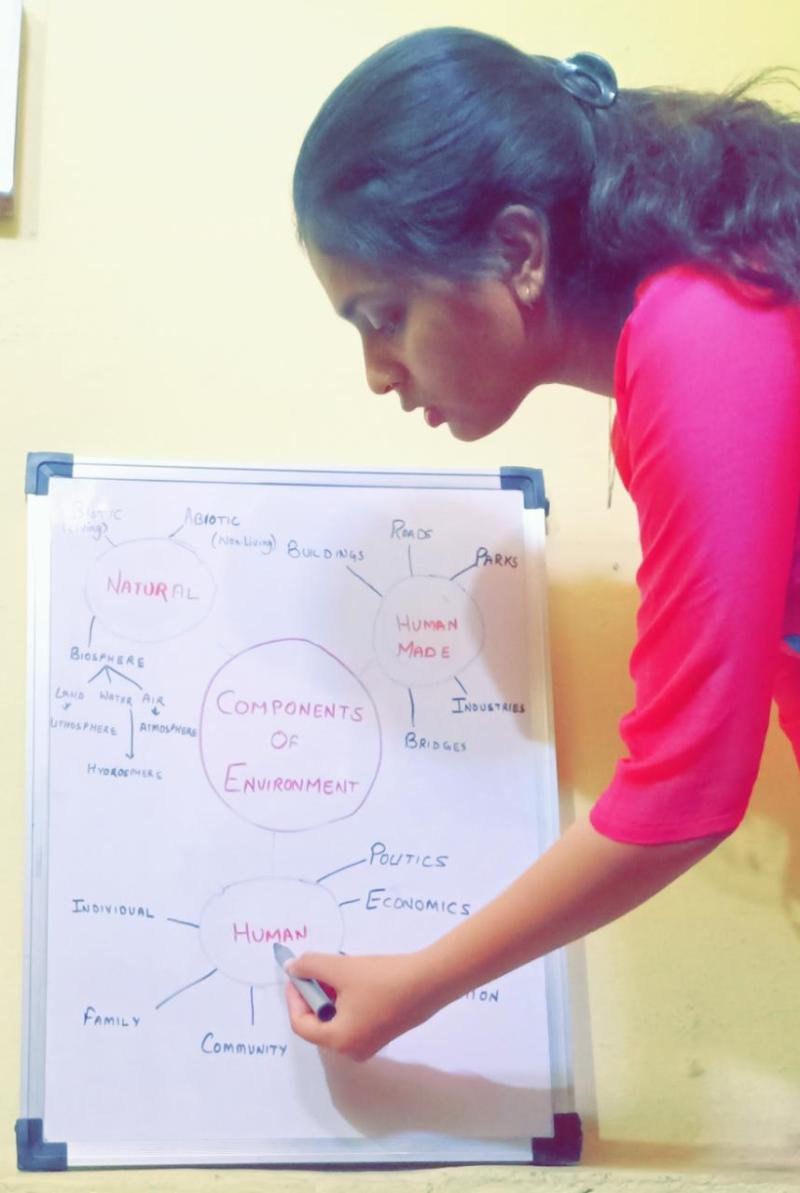 BIOTIC
(Living)
ABIOTIC
(Non-Living)
NATURAL
BIOSPHERE
LAND WATER AIR
LITHOSPHERE
ATMOSPHERE
HYDROSPHERE
ROADS
BUILDINGS
PARKS
HUMAN
MADE
INDUSTRIES
BRIDGES
COMPONENTS
OF
ENVIRONMENT
POLITICS
ECONOMICS
INDIVIDUAL
HUMAN
FAMILY
COMMUNITY